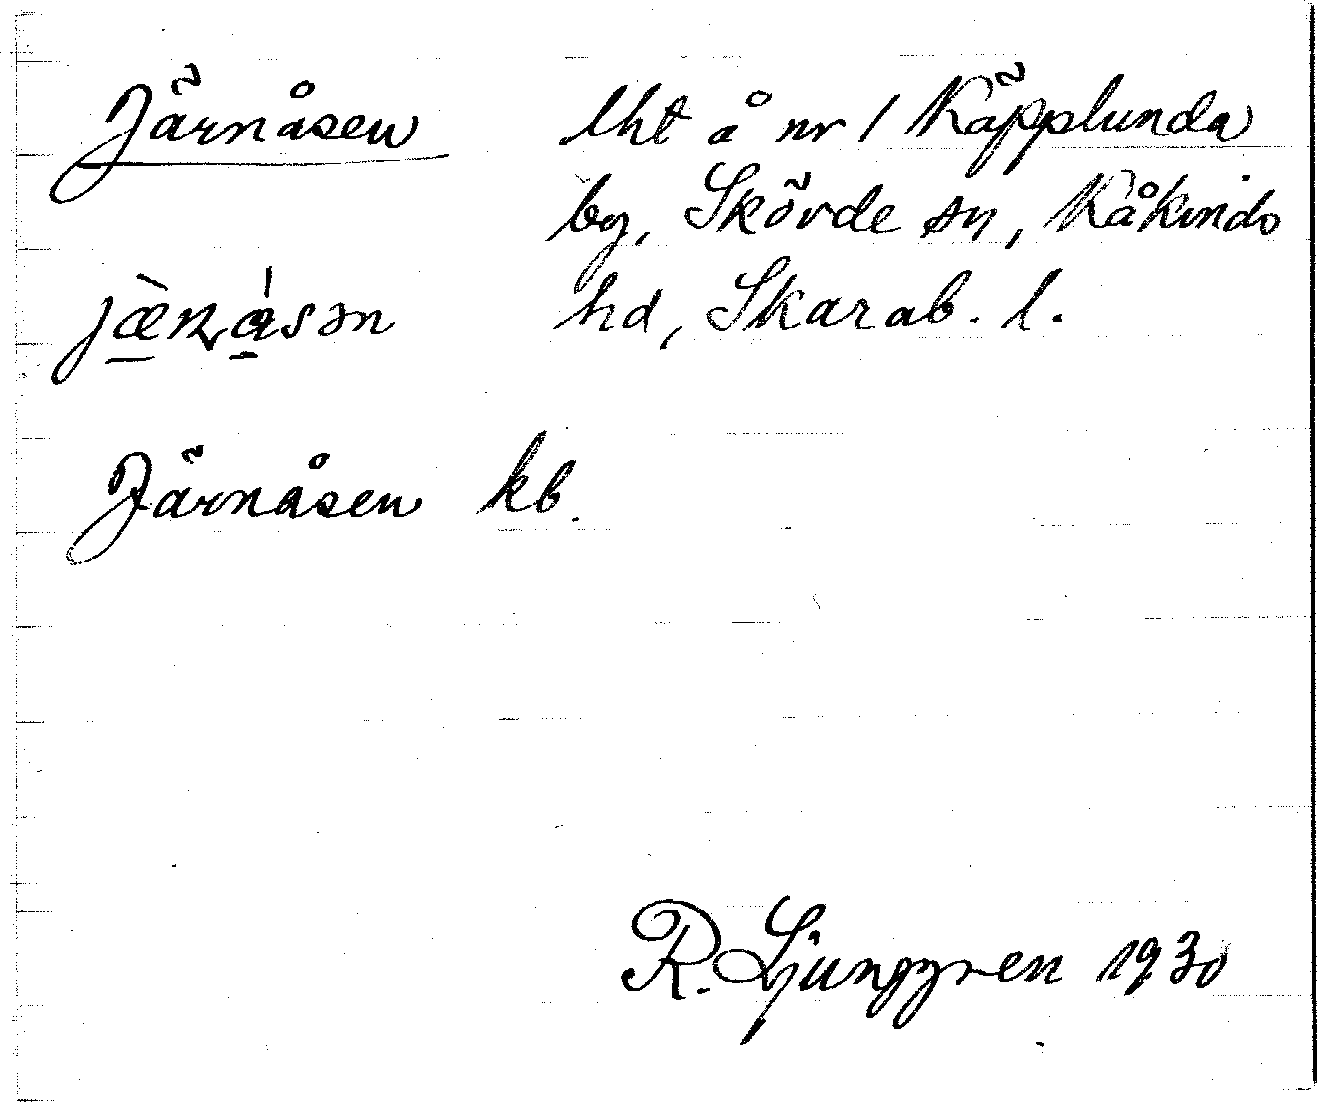 Järnåsen lht å nr 1 Käpplunda
by, Skövde sn, Kåkinds
hd, Skarab. l.
Järnåsen kb.
R. Ljunggren 1930